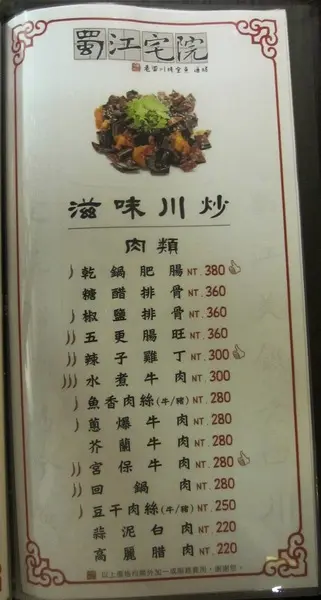 蜀江宅院
滋味川炒
肉類
乾鍋肥腸 NT.380
糖醋排骨 NT.360
椒鹽排骨 NT.360
五更腸旺 NT.360
辣子雞丁 NT.300
水煮牛肉 NT.300
魚香肉絲(牛/豬) NT.280
蔥爆牛肉 NT.280
芥蘭牛肉 NT.280
宮保牛肉 NT.280
回鍋肉 NT.280
豆干肉絲(牛/豬) NT.250
蒜泥白肉 NT.220
高麗腊肉 NT.220
以上價格均需外加一成服務費用，謝謝您。